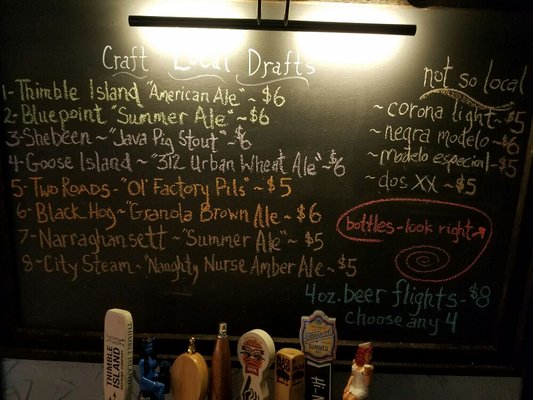 Craft Local Drafts
1-Thimble Island "American Ale" ~ $6
2-Bluepoint "Summer Ale" ~ $6
3-Shebeen ~ "Java Pig Stout" ~ $6
4-Goose Island ~ "312 Urban Wheat Ale" ~ $6
5-Two Roads - "Ol' Factory Pils" ~ $5
6-Black Hog ~ "Granola Brown Ale ~ $6
7-Narraghansett ~ "Summer Ale" ~ $5
8-City Steam ~ "Naughty Nurse Amber Ale ~ $5
not so local
~corona light ~ $5
~negra modelo ~ $6
~modelo especial ~ $5
~dos XX ~ $5
bottles - look right
4oz. beer flights - $8
choose any 4
THIMBLE ISLAND
SUMMER